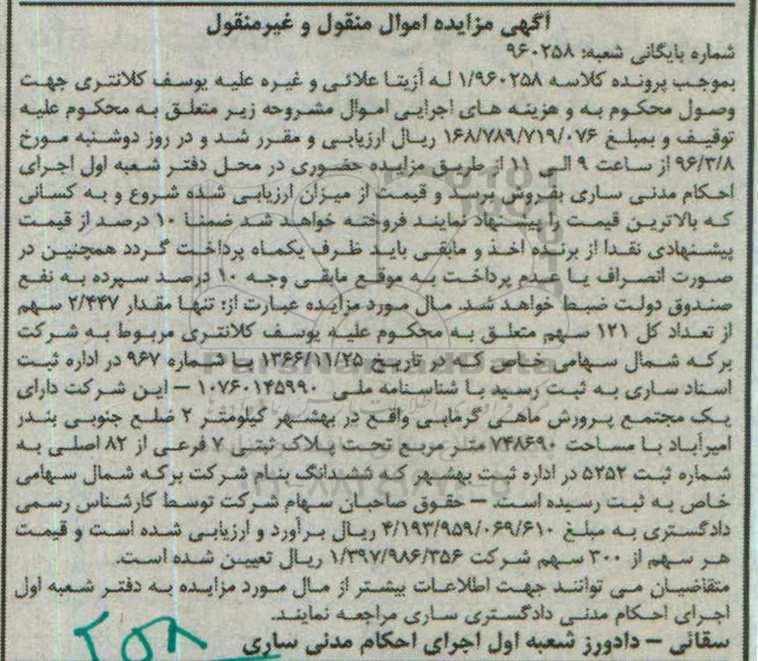 آگهی مزایده اموال منقول و غیرمنقول
شماره بایگانی شعبه: ۹۶۰۲۵۸
بموجب پرونده کلاسه ۱/۹۶۰۲۵۸ له آزیتا علائی و غیره علیه یوسف کلانتری جهت
وصول محکوم به و هزینه های اجرایی اموال مشروحه زیر متعلق به محکوم علیه
توقیف و بمبلغ ۱۶۸/۷۸۹/۷۱۹/۰۷۶ ریال ارزیابی و مقرر شد و در روز دوشنبه مورخ
۹۶/۳/۸ از ساعت ۹ الی ۱۱ از طریق مزایده حضوری در محل دفتر شعبه اول اجرای
احکام مدنی ساری بفروش برسد و قیمت از میزان ارزیابی شده شروع و به کسانی
که بالاترین قیمت را پیشنهاد نمایند فروخته خواهد شد ضمنا ۱۰ درصد از قیمت
پیشنهادی نقدا از برنده اخذ و مابقی باید ظرف یکماه پرداخت گردد همچنین در
صورت انصراف یا عدم پرداخت به موقع مابقی وجه ۱۰ درصد سپرده به نفع
صندوق دولت ضبط خواهد شد. مال مورد مزایده عبارت از: تنها مقدار ۲/۴۴۷ سهم
از تعداد کل ۱۲۱ سهم متعلق به محکوم علیه یوسف کلانتری مربوط به شرکت
برکه شمال سهامی خاص که در تاریخ ۱۳۶۶/۱۱/۲۵ با شماره ۹۶۷ در اداره ثبت
اسناد ساری به ثبت رسید با شناسنامه ملی ۱۰۷۶۰۱۴۵۹۹۰ – این شرکت دارای
یک مجتمع پرورش ماهی گرمابی واقع در بهشهر کیلومتر ۲ ضلع جنوبی بندر
امیرآباد با مساحت ۷۴۸۶۹۰ متر مربع تحت پلاک ثبتی ۷ فرعی از ۸۲ اصلی به
شماره ثبت ۵۲۵۲ در اداره ثبت بهشهر که ششدانگ بنام شرکت برکه شمال سهامی
خاص به ثبت رسیده است. – حقوق صاحبان سهام شرکت توسط کارشناس رسمی
دادگستری به مبلغ ۴/۱۹۳/۹۵۹/۰۶۹/۶۱۰ ریال برآورد و ارزیابی شده است و قیمت
هر سهم از ۳۰۰ سهم شرکت ۱/۳۹۷/۹۸۶/۳۵۶ ریال تعیین شده است.
متقاضیان می توانند جهت اطلاعات بیشتر از مال مورد مزایده به دفتر شعبه اول
اجرای احکام مدنی دادگستری ساری مراجعه نمایند.
سقائی – دادورز شعبه اول اجرای احکام مدنی ساری
۲۵۸
ParsNamadData